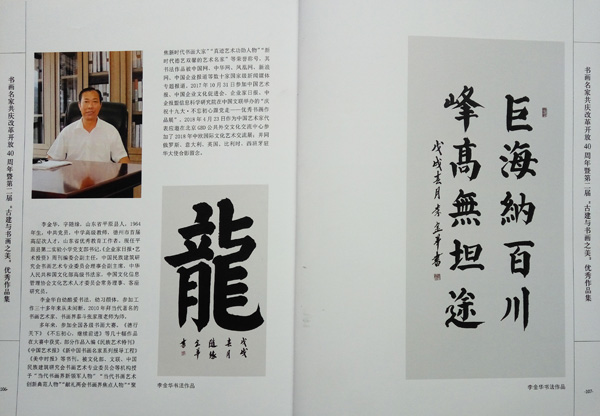 书画名家共庆改革开放40周年暨第二届“古建与书画之美”优秀作品集
李金华，字随缘，山东省平原县人，1964
年生，中共党员，中学高级教师、德州市首届
高层次人才，山东省优秀教育工作者，现任平
原县第二实验小学党支部书记，《企业家日报·艺
术报景》周刊编委会副主任，中国民族建筑
研究会书画艺术专业委员会理事会副主席，中华
人民共和国文化部高级书法家、中国文化信息
管理协会文化艺术人才委员会常务理事、客座
研究员。
李金华自幼酷爱书法，临习颜体，参加工
作三十多年来从未间断，2010年拜当代著名的
书画艺术家、书画界泰斗张荣强老师为师。
多年来，参加全国各级书画大赛，《德行
天下》《不忘初心，继续前进》等几十幅作品
在大赛中获奖，部分作品入编《民族艺术特刊》
《中国艺术报》《新中国书画名家系列报导工程》
《美中时报》等书刊，被文化部、文联、中国
民族建筑研究会书画艺术专业委员会等机构授予
“当代书画界新领军人物”“当代书画艺术
创新典范人物”“献礼两会书画界焦点人物”“聚
焦新时代书画大家”“真迹艺术功勋人物”“新
时代德艺双馨的艺术名家”等荣誉称号。其
书法作品被中国网、中华网、凤凰网、新浪
网、中国企业报道等数十家国家级新闻媒体
专题报道。2017年10月31日参加中国艺术
报、中国企业文化促进会、企业家日报、中
企报盟信息科学研究院在中国文联举办的“庆
祝十九大·不忘初心跟党走——优秀书画作
品展”。2018年4月23日作为中国艺术家代
表应邀在北京GBD公共外交文化交流中心参
加了2018年中欧国际文化艺术交流展，并同
俄罗斯、意大利、英国、比利时、西班牙驻
华大使合影留念。
龍
戊戌
春月
随缘
金华
書
李金华书法作品
巨海納百川
峰高無坦途
戊戌春月李金華書
李金华书法作品
书画名家共庆改革开放40周年暨第二届“古建与书画之美”优秀作品集